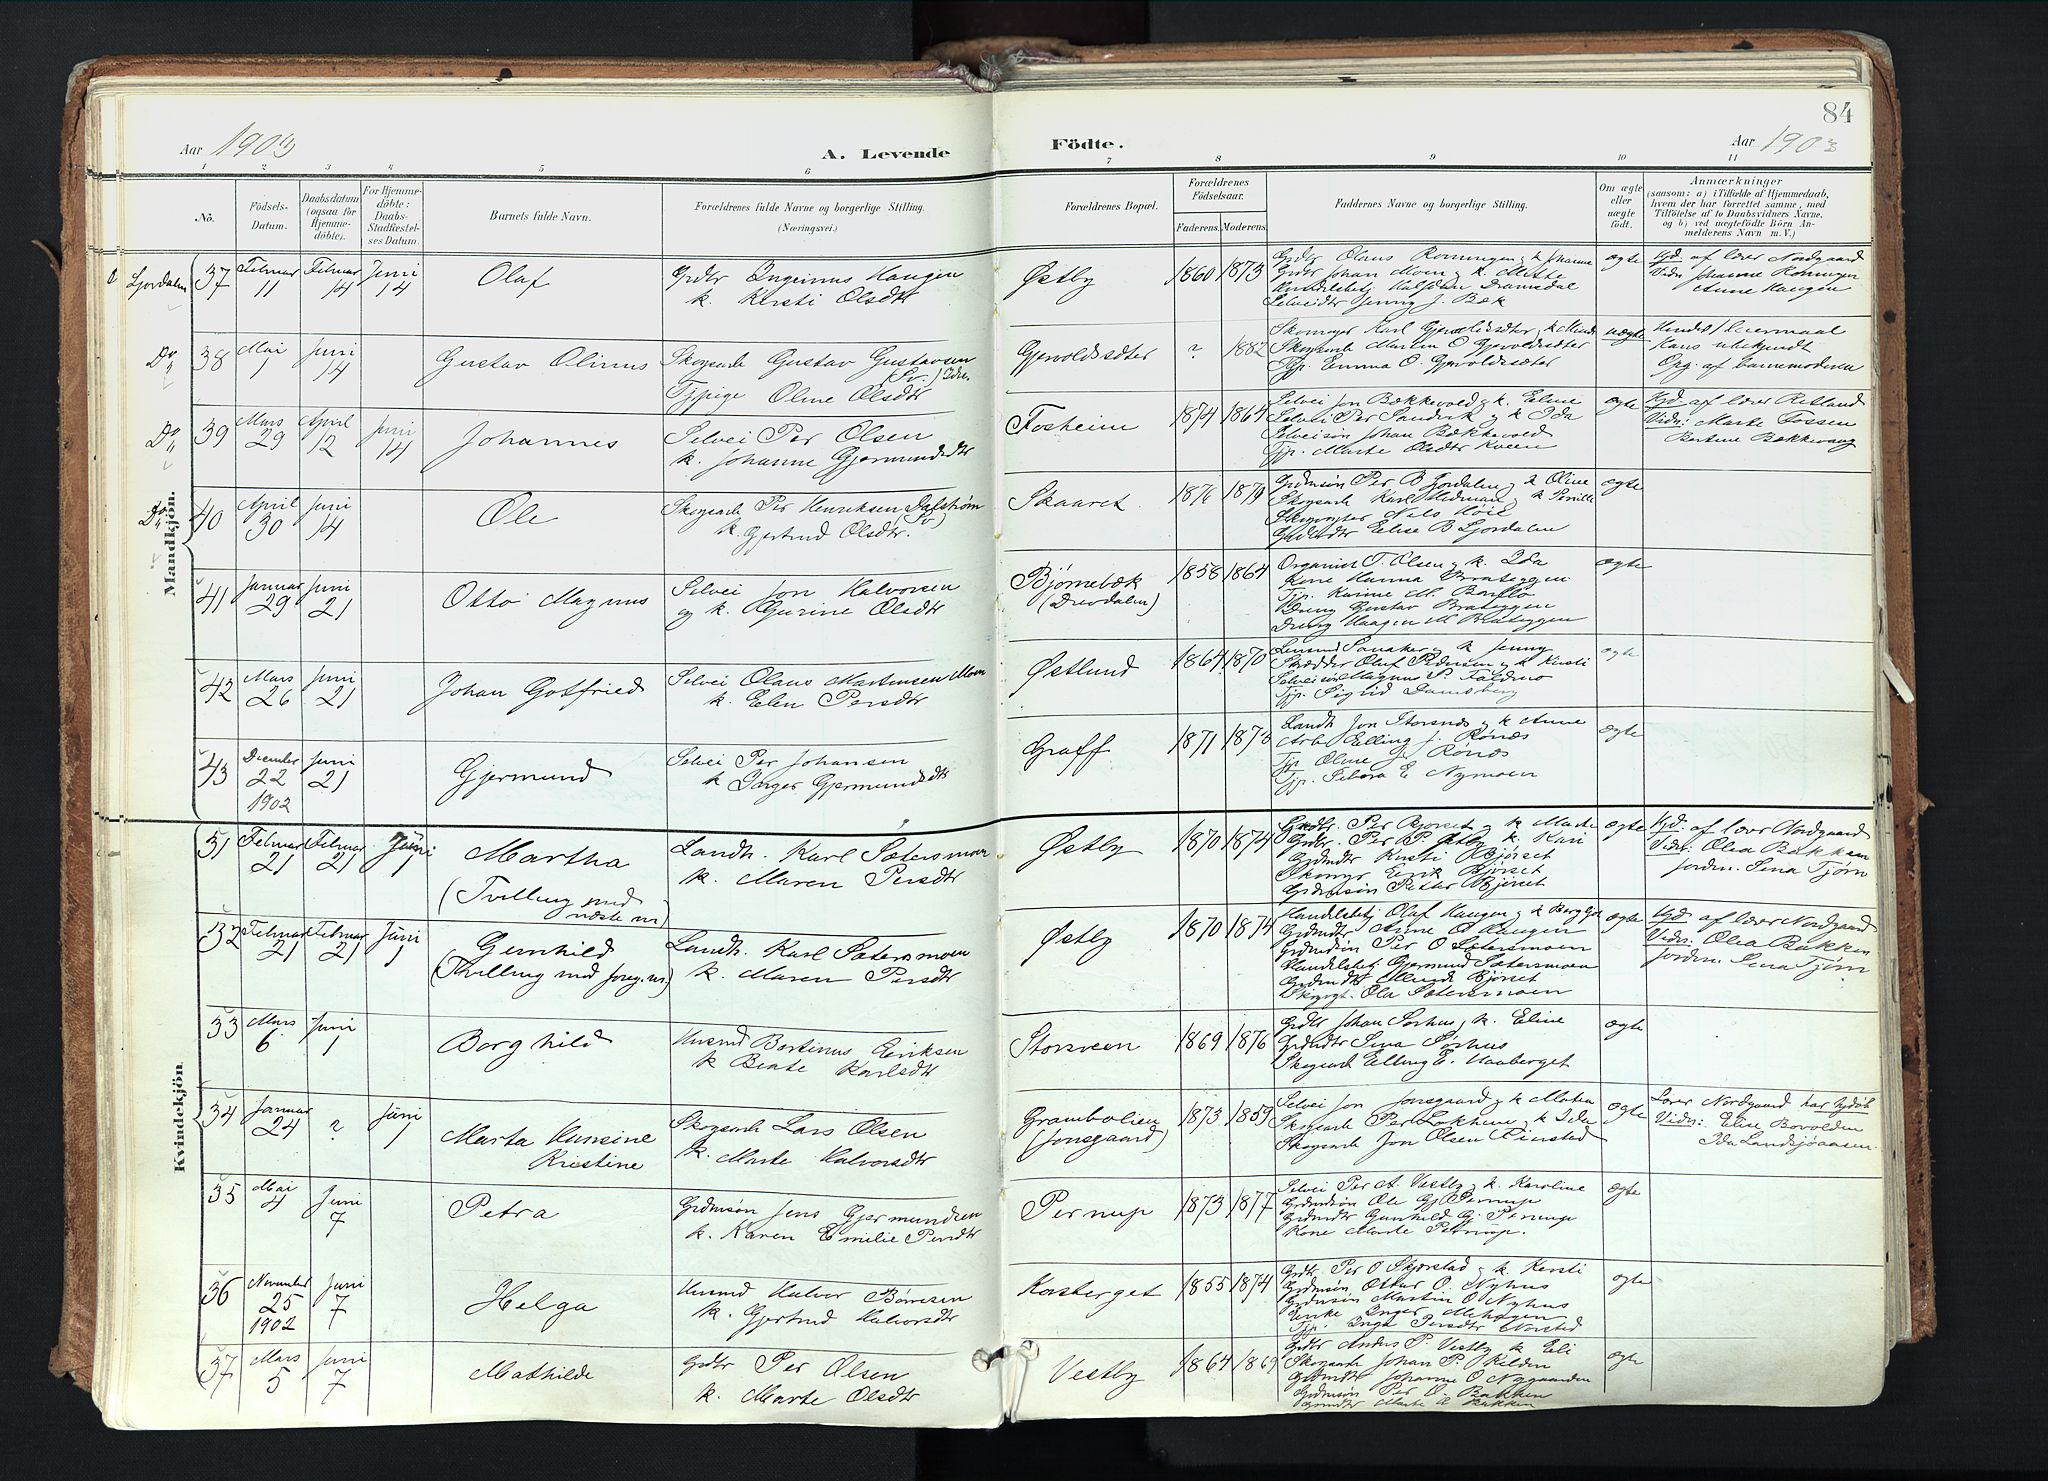 84
Aar 1903
A. Levende
Födte.
Aar 1903
1 2 3 4 5 6 7 8 9 10 11
No.
Födsels-
Datum.
Daabsdatum
(ogsaa for
Hjemme-
döbte).
For Hjemme-
döbte:
Daabs-
Stadfæstel-
ses Datum.
Barnets fulde Navn.
Forældrenes fulde Navne og borgerlige Stilling.
(Næringsvei.)
Forældrenes Bopæl.
Forældrenes
Födselsaar.
Faderens. Moderens.
Faddernes Navne og borgerlige Stilling.
Om ægte
eller
uægte
födt.
Anmærkninger
(saasom: a) i Tilfælde af Hjemmedaab,
hvem der har forrettet samme, med
Tilföielse af to Daabsvidners Navne,
og b) ved uægtefödte Börn An-
melderens Navn m. V.)
Mandkjön.
Ljørdalen 37 Februar 11 Februar 14 Juni 14 Olaf
Grdbr Ingeinus Haugen
k. Kirsti Olsdtr
Østby 1860 1873
Grdbr Olaus Rønningen k Johanne
Grdbr Johan Moen og k. Mitte
Handelsbetj Halfdan Dramsdal
Selveidtr Jenny J. Bæk
ægte
Hjd. af lærer Nordgaard
Vidn: Johanne Rønningen
Anne Haugen
Do 38 Mai 1 Juni 14 Gustav Olinus
Skogsarb Gustav Gustavsen
(Sv.) Idre
Tjpige Oline Olsdtr
Gjervoldssæter ? 1882
Karl Gjervoldssæter k
Skogsarb Martin O Gjervoldssæter
Tjp. Emma O. Gjervoldssæter
uægte
Hendes 1 leiermaal
Hans ubekjendt
Opg. af barnemoderen
Do 39 Mars 29 April 12 Juni 14 Johannes
Selvei Per Olsen
k. Johanne Gjermundsdtr
Fosheim 1874 1864
Selvei Jon Bækkevold og k. Eline
Selvei Per Sandvik og k Ida
Selveisøn Johan Bækkevold
Tjp. Marte Olsdtr Kveen
ægte
Hjd. af lærer Retland
Vidn: Marte Fossen
Bertine Bækkevang
Do 40 April 30 Juni 14 Ole
Skogsarb Per Henriksen Dalstrøm
(Sv)
k. Gjertrud Olsdtr.
Skaaret 1876 1879
Grdmsøn Per B Ljørdalen og k Oline
Skogsarb Karl Hedman og k Pernille
Nils Høie
Elise B Ljørdalen
ægte
41 Januar 29 Juni 21 Otto Magnus
Selvei Jon Halvorsen
og k. Gurine Olsdtr
Bjørnebæk
(Drevdalen)
1858 1864
Organist T. Olsen og k. Ida
Kone Hanna Brateggen
Tjp. Karine M. Barflo
Dreng Gustav Brateggen
Dreng Haagen M Brateggen
ægte
42 Mars 26 Juni 21 Johan Gotfried
Selvei Olaus Martinsen Moen
k. Elen Persdtr
Østlund 1864 1870
Lensmd Sanaker og k Jenny
Skrædder Oluf Pedersen og k Kirsti
Selveisøn Magnus P. Faldmo
Tjp. Sigrid Damsberg
ægte
43 December 22 1902 Juni 21 Gjermund
Selvei Per Johansen
k Inger Gjermundsdtr
Graff 1871 1873
Landh Jon Storsnæs og k Anne
Arb Elling J. Rønæs
Tjp Oline J. Rønæs
Tjp. Selora E Nymoen
ægte
Kvindekjön.
31 Februar 21 Februar 21 Juni 1 Martha
(Tvilling med
næste nr)
Landh. Karl Sætersmoen
k. Maren Persdtr
Østby 1870 1874
Grdbr. Per Bjørset og k Marte
Grdbr. Per P. Østby k. Kari
Grdmdtr Kirsti Bjørset
Erik Bjørset
Grdmsøn Peter Bjørset
ægte
Hjd. af lærer Nordgaard
Vidn: Olea Bakken
Jordm. Sena Tjørn
32 Februar 21 Februar 21 Juni 1 Gunhild
(Tvilling med foreg. nr.)
Landh. Karl Sætersmoen
k. Maren Persdtr
Østby 1870 1874
Handelsbetj Olaf Haugen og k
Grdmdtr Anne O Haugen
Grdmsøn Per O Sætersmoen
Handelsbetj Gjermund Sætersmoen
Grdmdtr Bjørset
Skogvgt. Ola Sætersmoen
ægte
Hjd. af lærer Nordgaard
Vidn: Olea Bakken
Jordm. Sena Tjørn
33 Mars 6 Juni 1 Borghild
Husmd Bertinus Eriksen
k Beate Karlsdtr
Storsveen 1869 1876
Grdbr Johan Sorhus, k. Eline
Grdmdtr Sina Sorhus
Skogsarb Elling E. Haaberget
ægte
34 Januar 24 ? Juni 1 Marta Hansine
Kristine
Skogsarb Lars Olsen
k. Marte Halvorsdtr
Grambolien
(Jonsgaard)
1873 1859
Selvei Jon Jonsgaard og k Mathea
Skogsarb Per Løkhem k Ida
Skogsarb Jon Olsen Finstad
ægte
Lærer Nordgaard har hjdøbt
Vidn: Elise Bovolden
Ida Landsjøaasen
35 Mai 4 Juni 7 Petra
Grdmsøn Jens Gjermundsen
k. Karen Emilie Persdtr
Pernup 1873 1877
Selvei Per A Vestby og k. Karoline
Grdmdsøn Ole Gj Pernup
Grdmdtr Gunhild Gj. Pernup
Kone Marte Pernup.
ægte
36 November 25 1902 Juni 7 Helga
Husmd Halvor Børresen
k. Gjertrud Halvorsdtr
Kosberget 1855 1874
Grdbr. Per O Skjørstad og k. Kersti
Grdmsøn Ottar O. Nyhus
Grdmsøn Martin O Nyhus
Enke Inger
Tjp. Inga Persdtr Norsted
ægte
37 Mars 5 Juni 7 Mathilde
Grdbr Per Olsen
k. Marte Olsdtr
Vestby 1864 1869
Grdbr Anders P. Vestby k Eli
Skogsarb Johan P. Kilden
Grdmdtr Johanne O Nygaarden
Grdmsøn Per O. Bakken
Grdmdtr Marte A Bakken
ægte